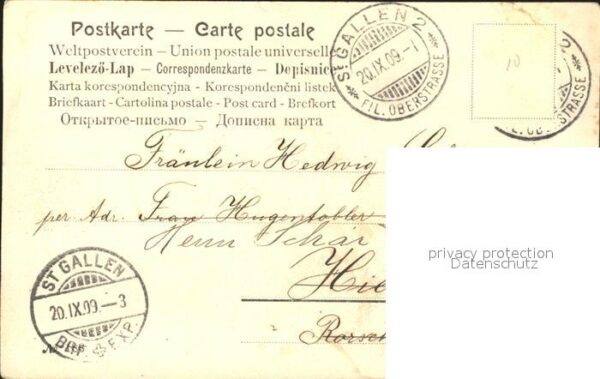 Postkarte — Carte postale
Weltpostverein – Union postale universelle
Levelező-Lap — Correspondenzkarte — Dopisnice
Karta korespondencyjna - Korespondenční listek
Briefkaart - Cartolina postale - Post card - Brefkort
Открытое-письмо — Дописна карта
ST GALLEN 2
20.IX.09.-1
FIL. OBERSTRASSE
10
2
STRASSE
Fräulein Hedwig
per Adr. Frau Hugentobler
Herrn Schär
privacy protection
Datenschutz
ST GALLEN
20.IX.09.-3
BRF. EXP.
Rorsch